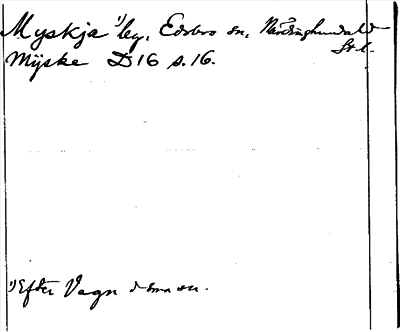 Myskja ¹⁾ leg. Edsbro sn, Närdinghundra hd
St. l.
Myske D16 s. 16.
¹⁾ Efter Vagn d sma sn.